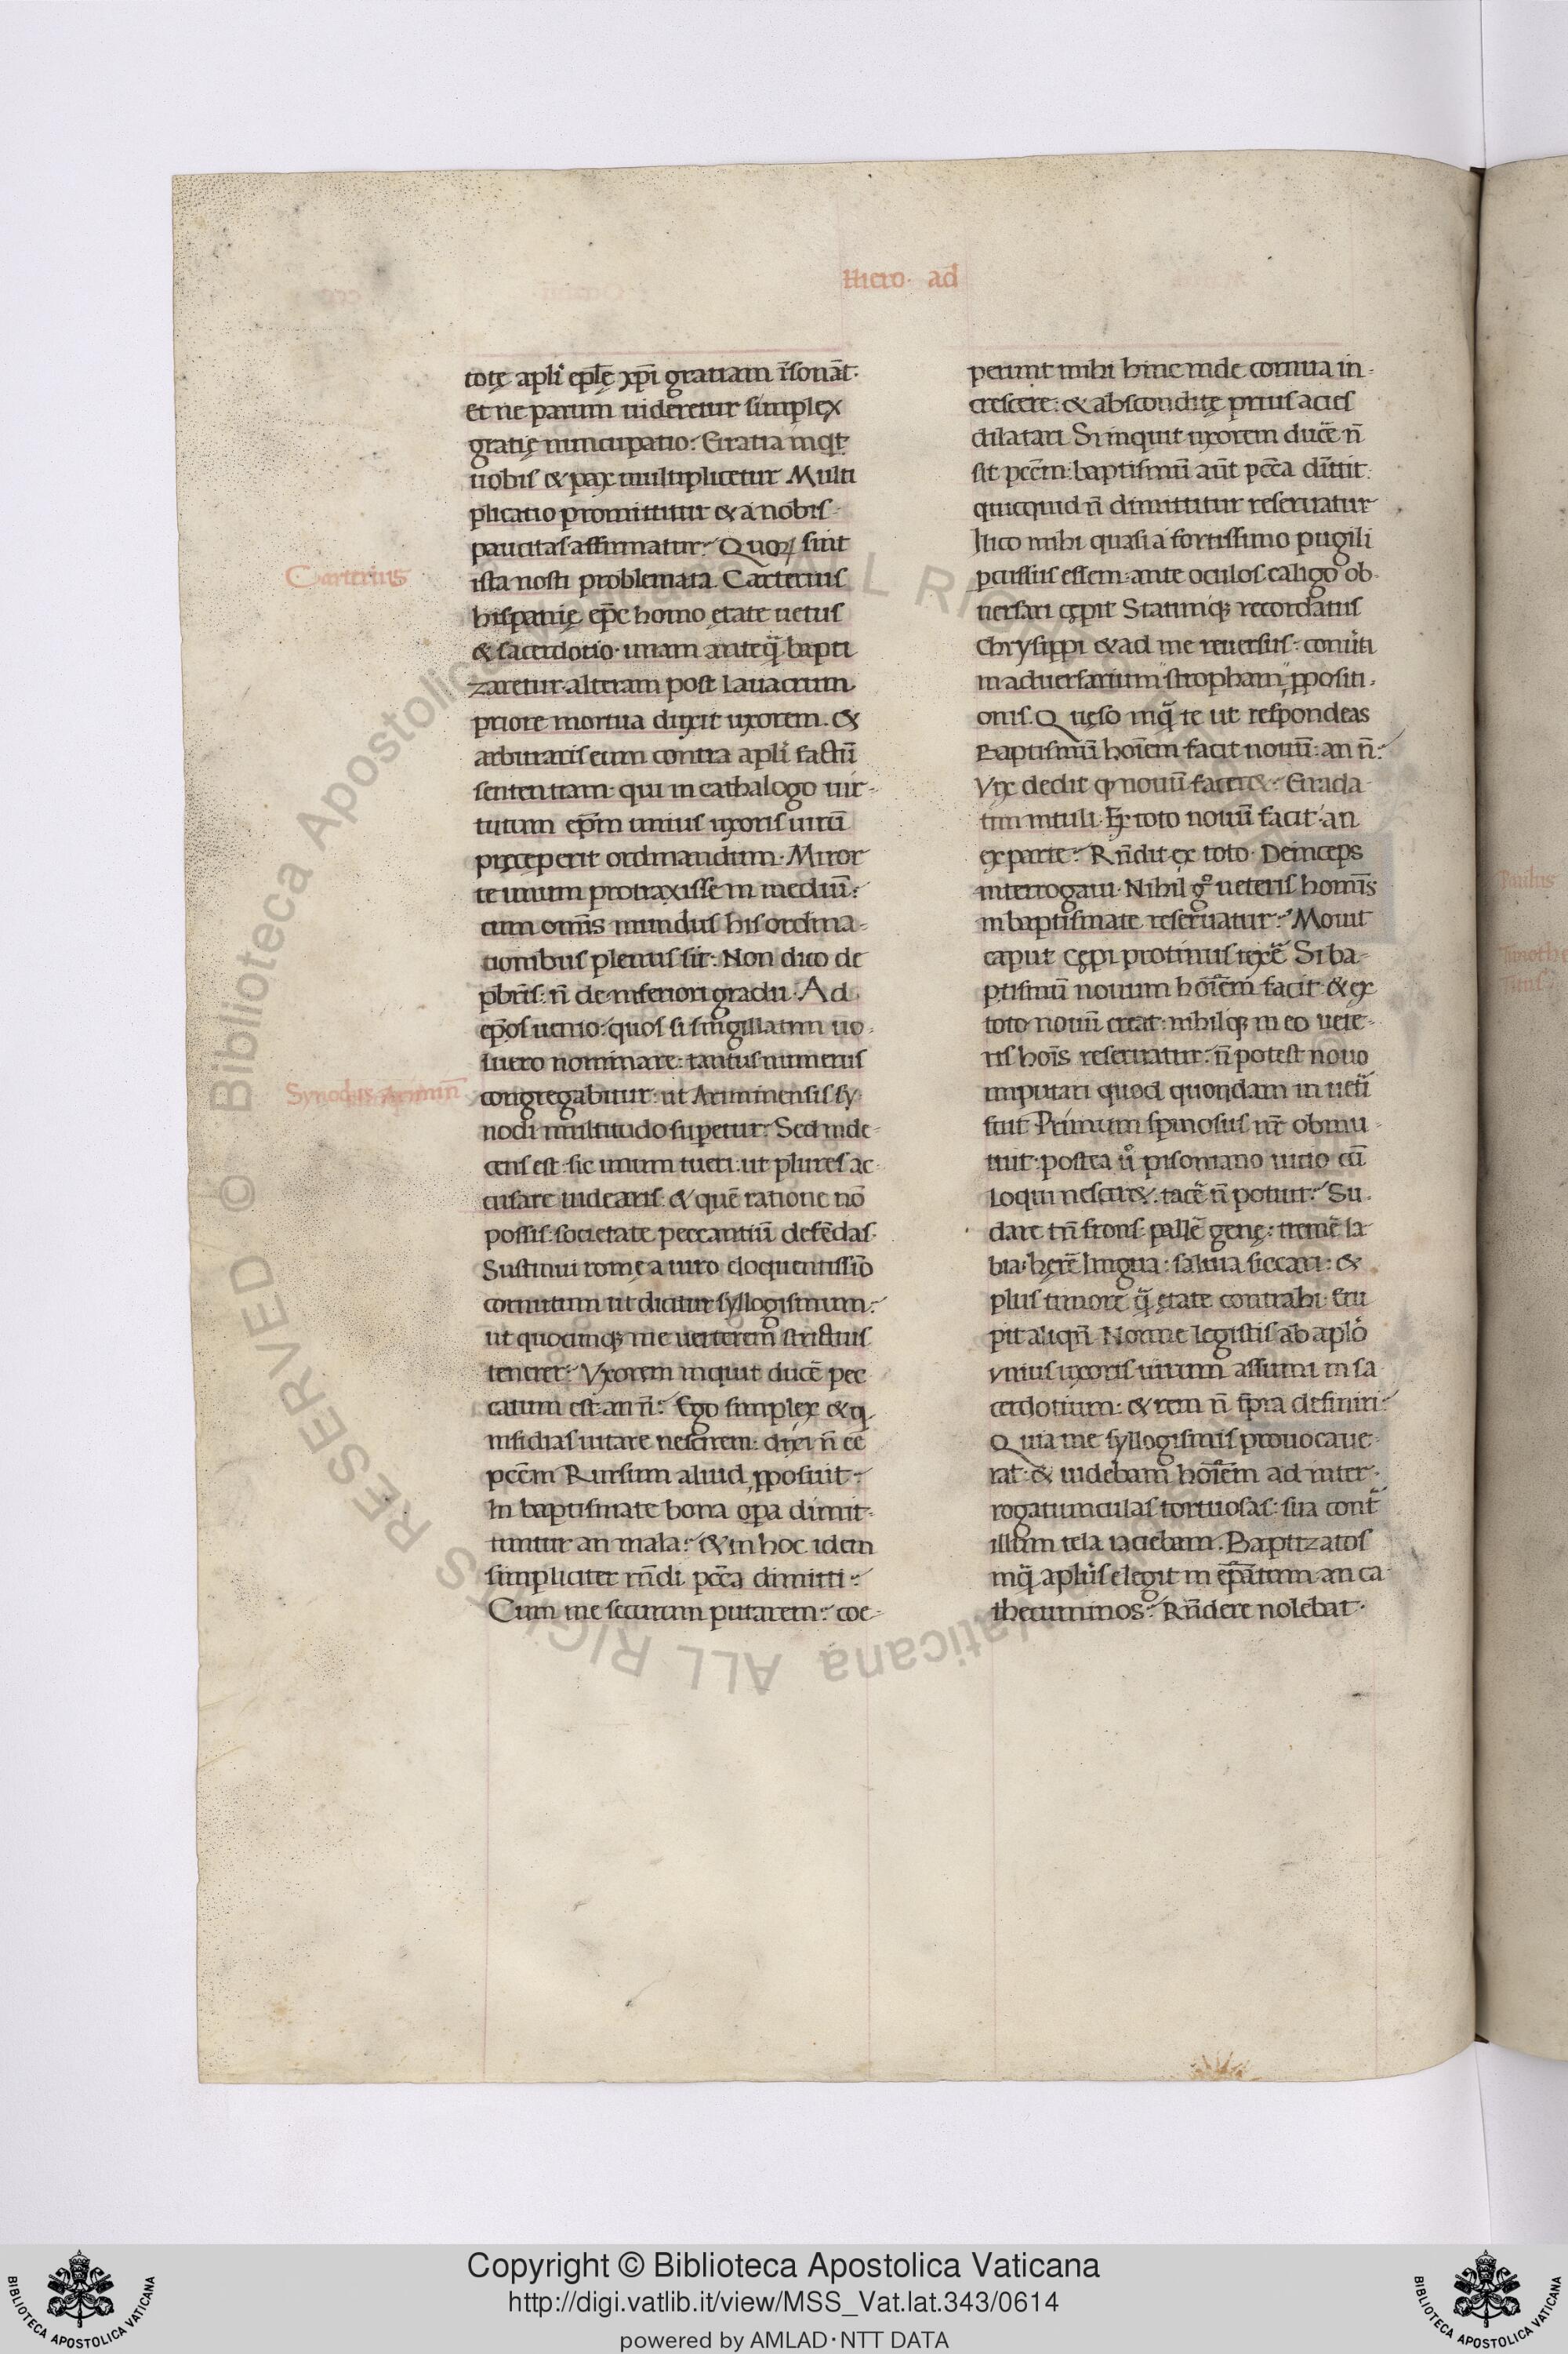 Hiero· ad
totę apl'i epl'ę xp̄i gratiam r̄sonāt·
Et ne parum uideretur simplex
gratię nuncupatio: Gratia inqͥt
uobis & pax multiplicetur Multi
plicatio promittitur & a nobis
paucitas affirmatur: Quoꝝ sint
ista nosti problemata. Carterius
hispanię ep̄c homo ętate uetus
& sacerdotio· unam anteq̄ bapti
zaretur· alteram post lauacrum
priore mortua duxit uxorem. &
arbitraris eum contra apl'i factū
sententiam· qui in cathalogo uir-
tutum ep̄m unius uxoris uirū
pręceperit ordinandum· Miror
te unum protraxisse in mediū:
cum om̄is mundus his ordina-
tionibus plenus sit· Non dico de
p̄bris: n̄ de inferiori gradu· Ad
ep̄os uenio· quos si singillatim uo-
luero nominare: tantus numerus
congregabitur· ut Ariminensis sy-
nodi multitudo supetur: Sed inde-
cens est· sic unum tueri: ut plures ac-
cusare uidearis· & quē ratione nō
possis: societate peccantiū defēdas·
Sustinui romę a uiro eloquentissīo
cornutum ut dicitur syllogismum:
ut quocunqꝫ me uerterem strictius
tenerer: Vxorem inquit ducē pec
catum est· an n̄: Ego simplex & q
insidias uitare nescirem: dixi n̄ ēē
pcc̄m Rursum aliud ꝓposuit:
In baptismate bona opa dimit-
tuntur an mala: & in hoc idem
simpliciter rn̄di pcc̄a dimitti:
Cum me securum putarem: coe-
Carterius
Synodus Arimin̄
perunt mihi hinc inde cornua in-
crescere: & abscondite prius acies
dilatari Si inquit uxorem ducē n̄
sit pcc̄m: baptismū aūt pcc̄a dīttit·
quicquid n̄ dimittitur reseruatur
Ilico mihi quasi a fortissimo pugili
pcussus essem· ante oculos caligo ob-
uersari cępit Statimqꝫ recordatus
Chrysippi & ad me reuersus: conūti
in aduersarium stropham ꝓpositi-
onis. Quęso inq̄ te ut respondeas
Baptismū hoīem facit nouū: an n̄:
Vix dedit ꝙ nouū facer&: Grada
tim intuli· Ex toto nouū facit· an
ex parte: Rn̄dit ex toto· Deinceps
interrogaui· Nihil gͦ ueteris hom̄is
in baptismate reseruatur: Mouit
caput cępi protinus texē Si ba-
ptismū nouum hoīem facit· & ex
toto nouū creat: nihilqꝫ in eo uete-
ris hoīs reseruatur: n̄ potest nouo
imputari quod quondam in uetī
fuit Primum spinosus nr̄ obmu-
tuit· postea ůͦ pisoniano uitio cū
loqui nescir&· tacē n̄ potuit: Su
dare tn̄ frons· pallē genę: tremē la
bia· hęrē lingua: saliua siccari: &
plus timore q̄ ętate contrahi· Eru
pit aliqn̄· Nonne legistis ab aplͦo
Vnius uxoris uirum assumi in sa
cerdotium: & rem n̄ tp̄ra definiri:
Quia me syllogismis prouocaue
rat· & uidebam hoīem ad inter-
rogatiunculas tortuosas: sua cont̄
illum tela iaciebam. Baptizatos
inq̄ apl'us elegit in ep̄atum· an ca
thecuminos: Rn̄dere nolebat·
Paulus
Titus
Copyright © Biblioteca Apostolica Vaticana
http://digi.vatlib.it/view/MSS_Vat.lat.343/0614
powered by AMLAD·NTT DATA
BIBLIOTECA APOSTOLICA VATICANA
BIBLIOTECA APOSTOLICA VATICANA